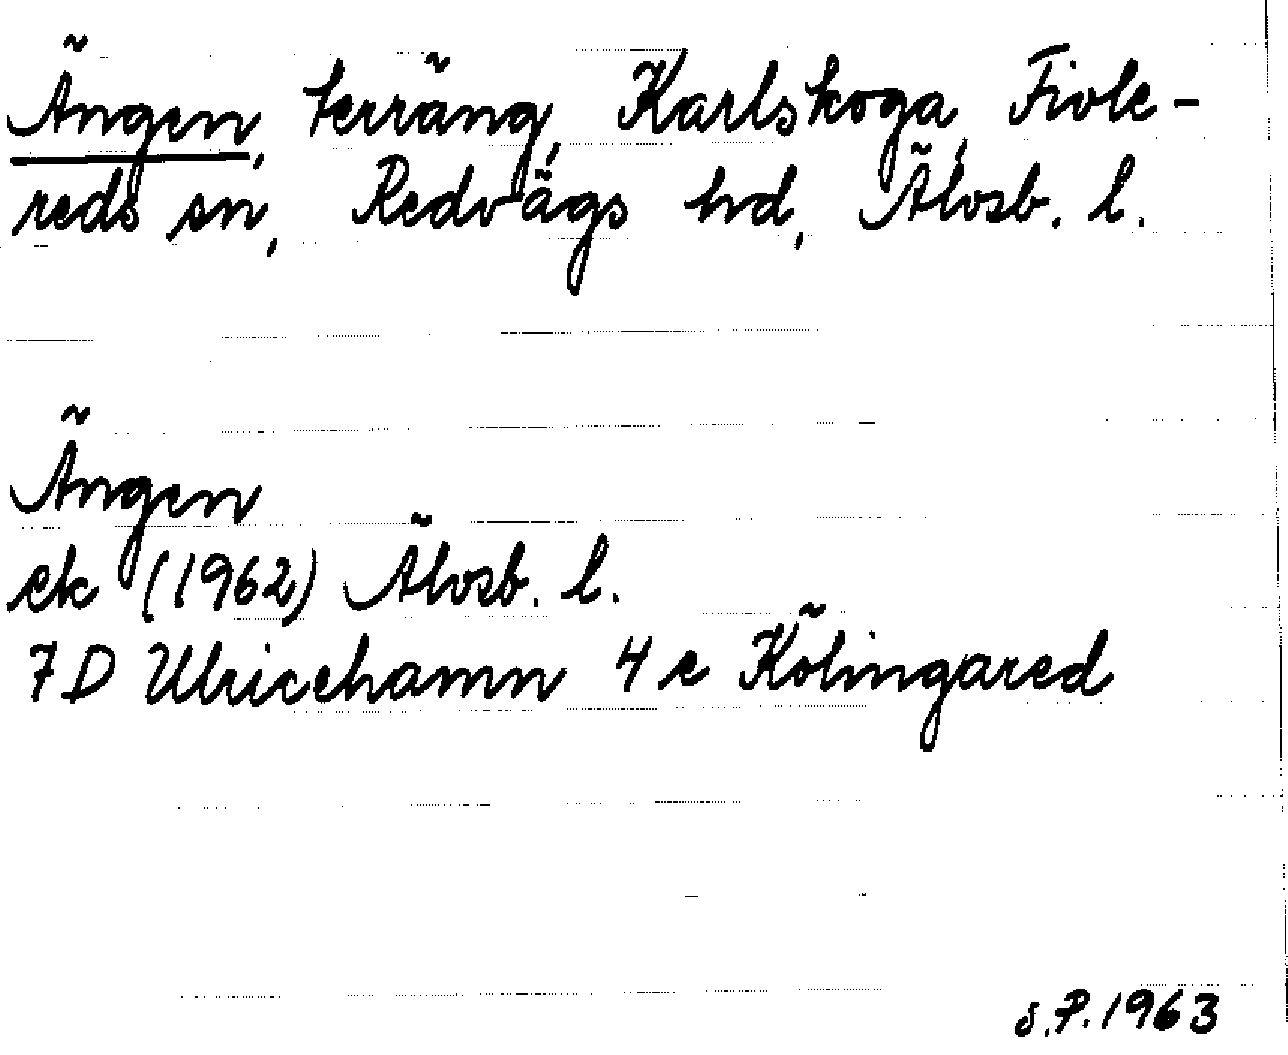 Ängen, terräng, Karlskoga, Fivle-
reds sn, Redvägs hd, Älvsb. l.
Ängen
ek (1962) Älvsb. l.
7D Ulricehamn 4e Kölingared
S.P. 1963